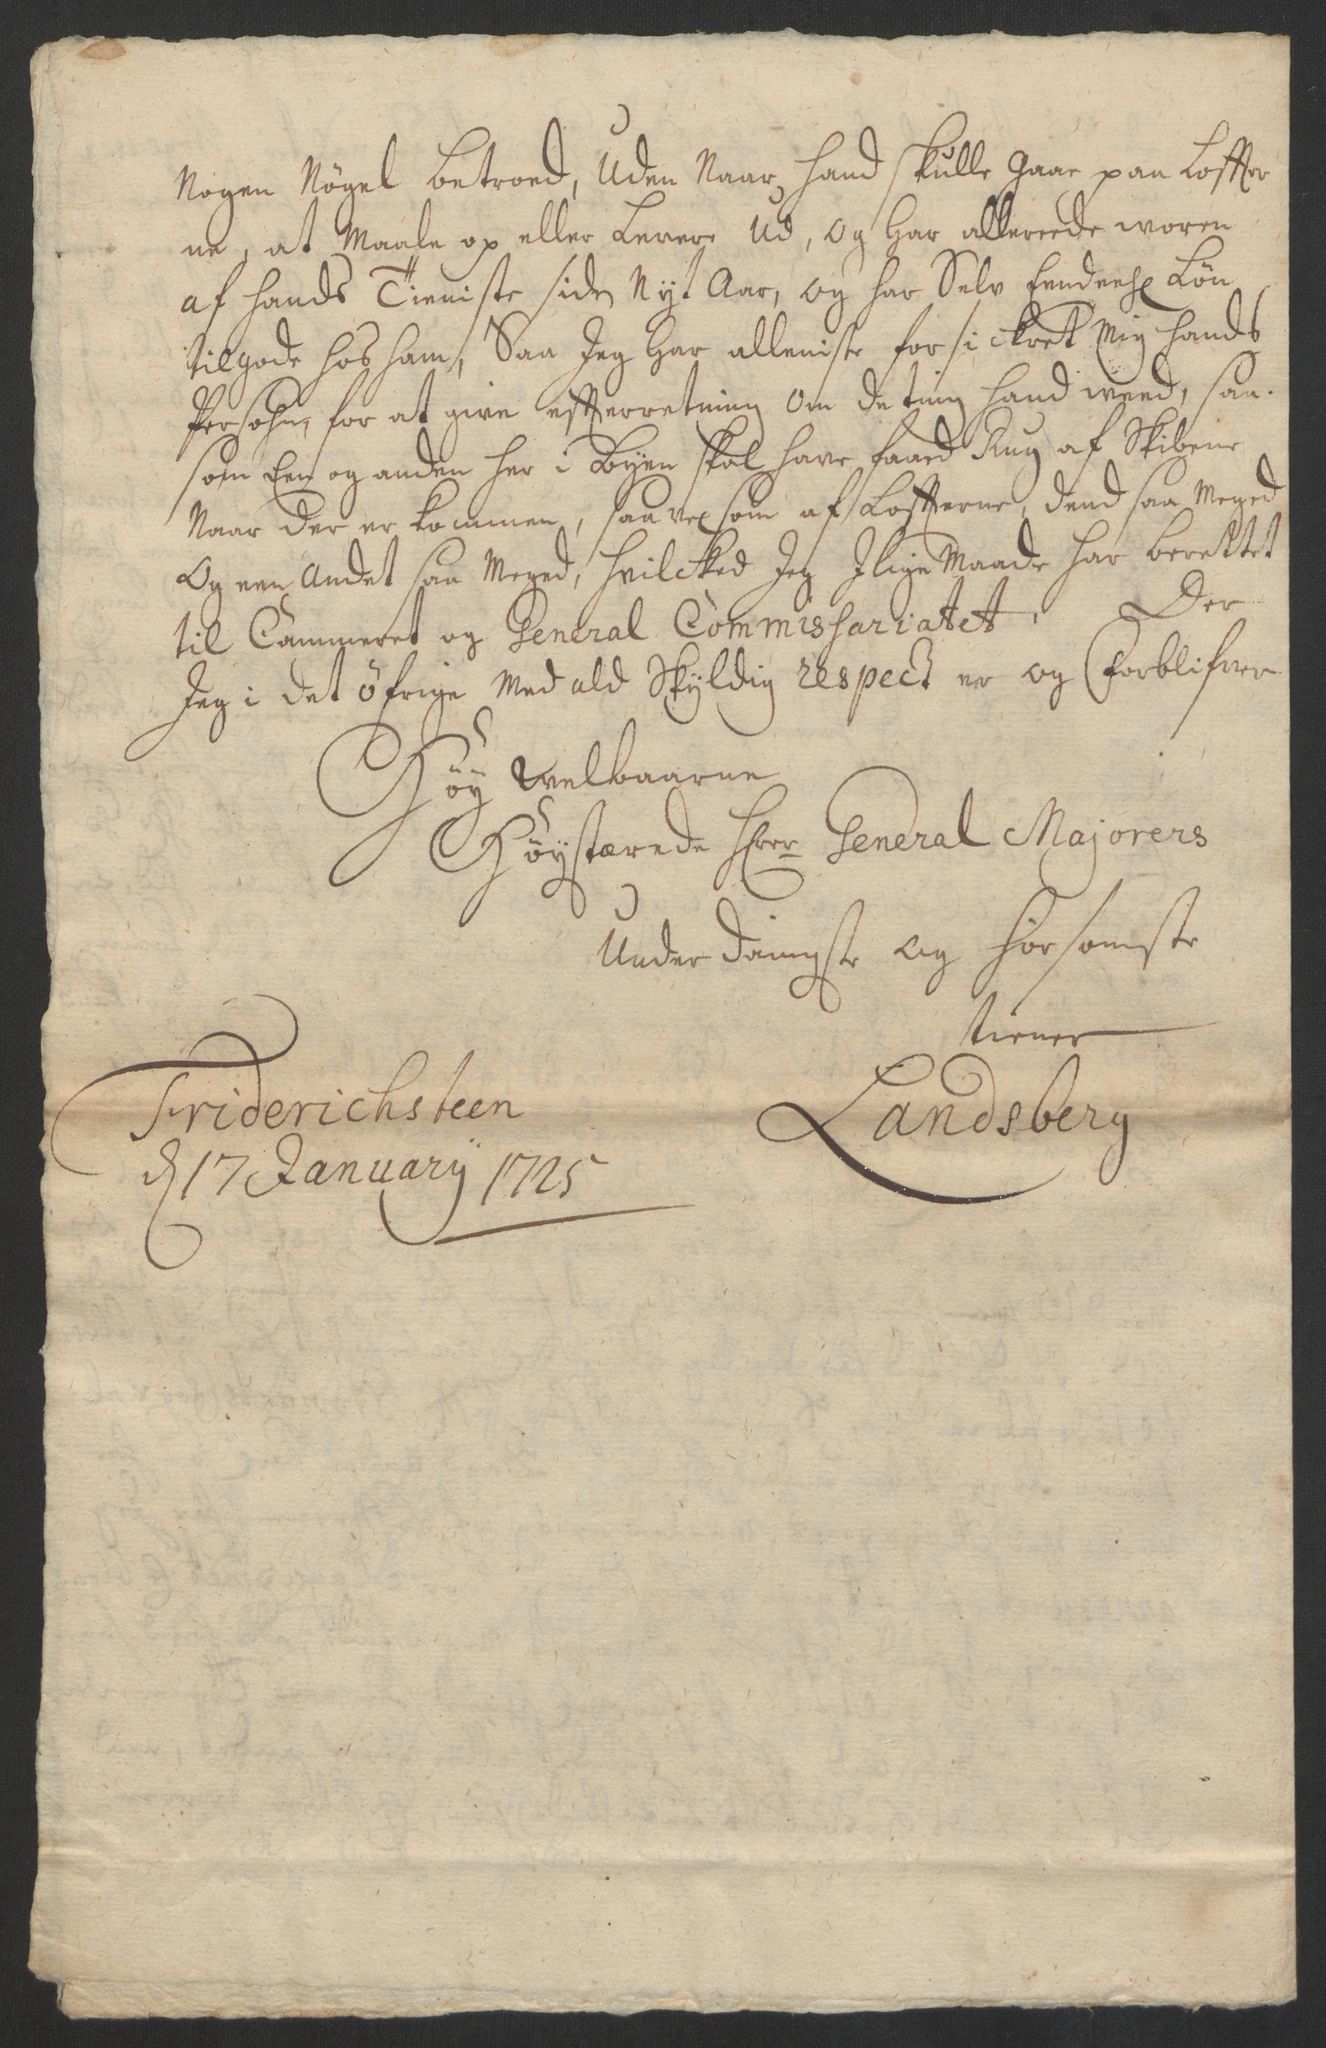 Nogen Nögel betroed, Uden Naar hand skulle gaae paa Loffter
ne, at Maale op eller Levere Ud, og har allereede woren
af hands Tieniste siden Nyt Aar, og har Selv Eendeehl Lön
tilgode hos ham, Saa Jeg har alleniste forsickret Mig hands
Persohn, for at give effterretning om de ting hand weed, saa-
som Een og anden her i Byen skal have faaed Rug af Skibene
Naar der er kommen, saavelsom af Loffterne, dend saa Meged
og een Andet saa Meged, hvilcked Jeg Jlige Maade har berettet
til Cammeret og General Commishariatet, Der
Jeg i det öfrige Med ald Skyldig respect er og Forblifver
Höy welbaarne
Höystærede Herr General Majorers
Underdanigste og hörsomste
tiener
Landsberg
Friderichsteen
d 17 January 1725